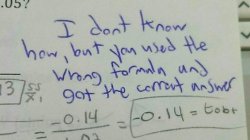 .05?
I dont know
how, but you used the
wrong formula and
got the correct answer
-0.14 = -0.14 = tobt